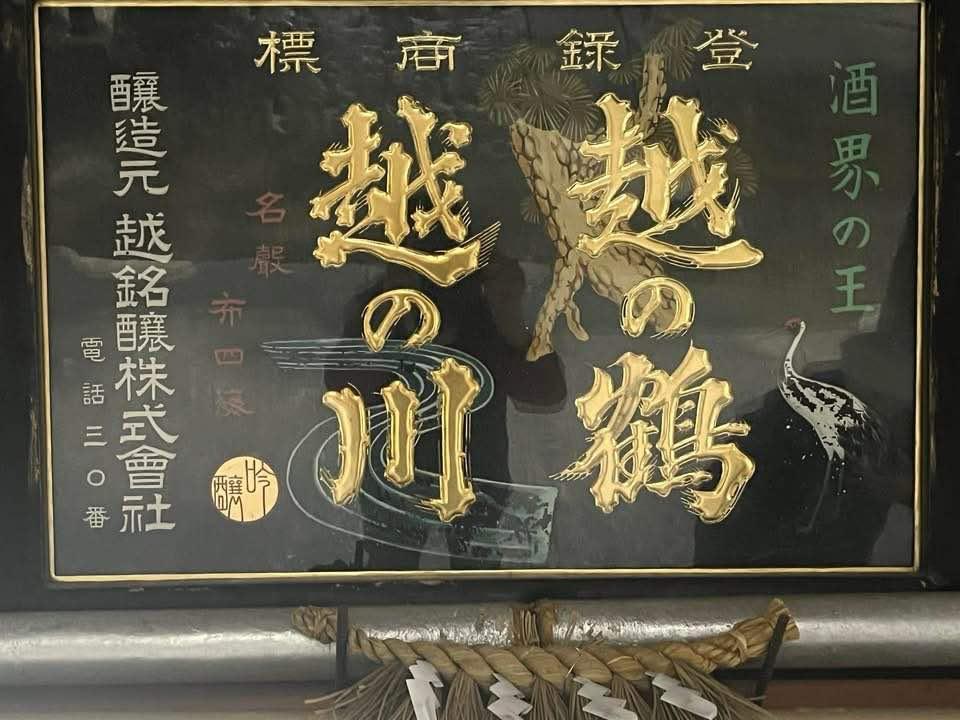 登録商標
酒界の王
越の鶴
越の川
名聲布四海
吟醸
醸造元 越銘醸株式會社
電話三〇番